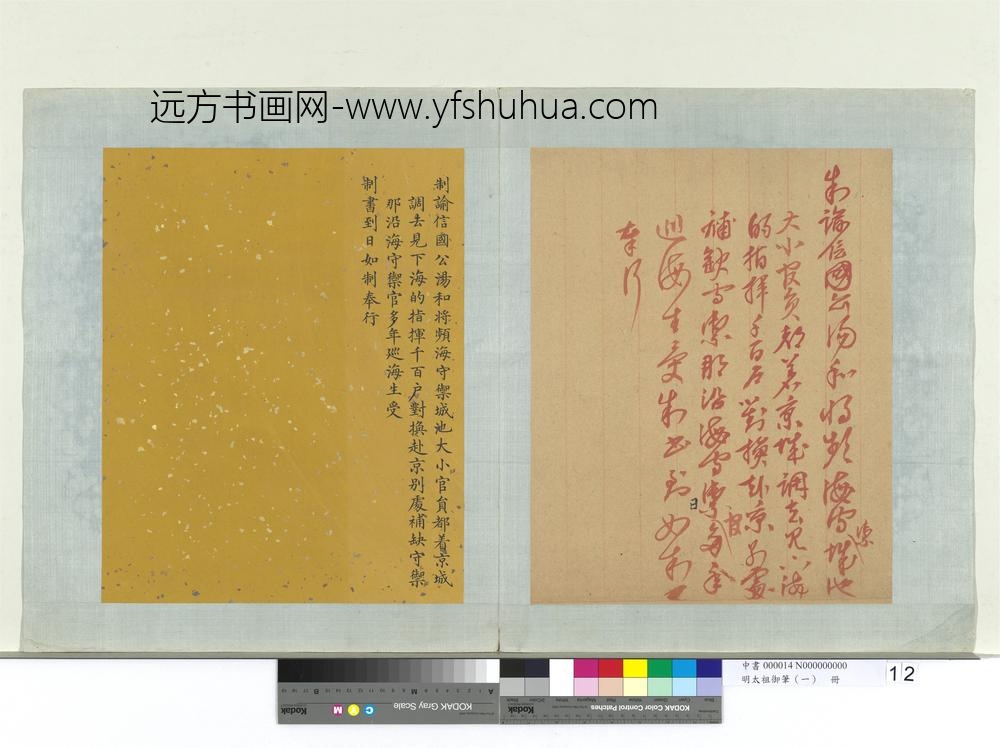 远方书画网-www.yfshuhua.com
制諭信國公湯和将頻海守禦
城池
大小官員都着京城調去見下海
的指揮千百户對換赴京别處
補缺守禦那沿海守禦官多年
廵海生受制書到日如制
奉行
制諭信國公湯和将頻海守禦城池大小官員都着京城
調去見下海的指揮千百户對換赴京别處補缺守禦
那沿海守禦官多年廵海生受
制書到日如制奉行
Kodak
KODAK Gray Scale
C Y M
KODAK Color Control Patches
中書 000014 N000000000
明太祖御筆（一） 冊
12